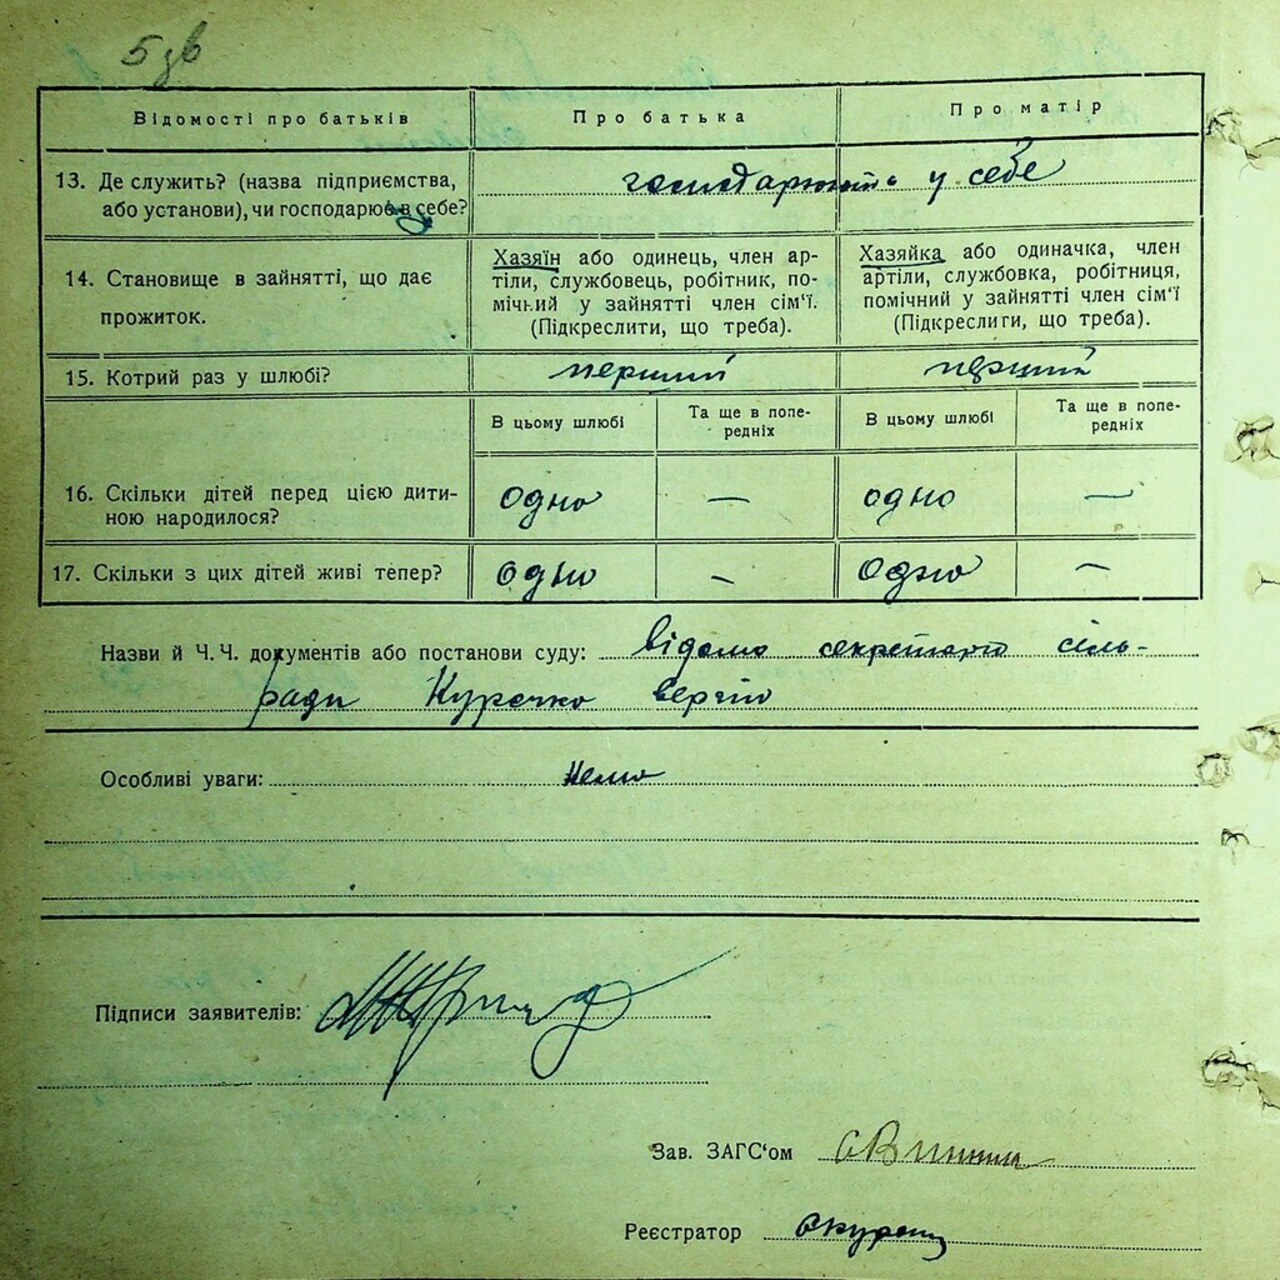 5 зв
Відомості про батьків Про батька Про матір
13. Де служить? (назва підприємства,
або установи), чи господарює в себе?
господарюють у себе
14. Становище в зайнятті, що дає
прожиток.
Хазяїн або одинець, член ар-
тіли, службовець, робітник, по-
мічний у зайнятті член сім'ї.
(Підкреслити, що треба).
Хазяйка або одиначка, член
артіли, службовка, робітниця,
помічний у зайнятті член сім'ї
(Підкреслити, що треба).
15. Котрий раз у шлюбі? перший перший
В цьому шлюбі Та ще в попе-
редніх
В цьому шлюбі Та ще в попе-
редніх
16. Скільки дітей перед цією дити-
ною народилося?
одно — одно —
17. Скільки з цих дітей живі тепер? одно — одно —
Назви й Ч. Ч. документів або постанови суду: відомо секретарю сіль-
ради Курочко
Особливі уваги: нема
Підписи заявителів:
Зав. ЗАГС'ом
Реєстратор